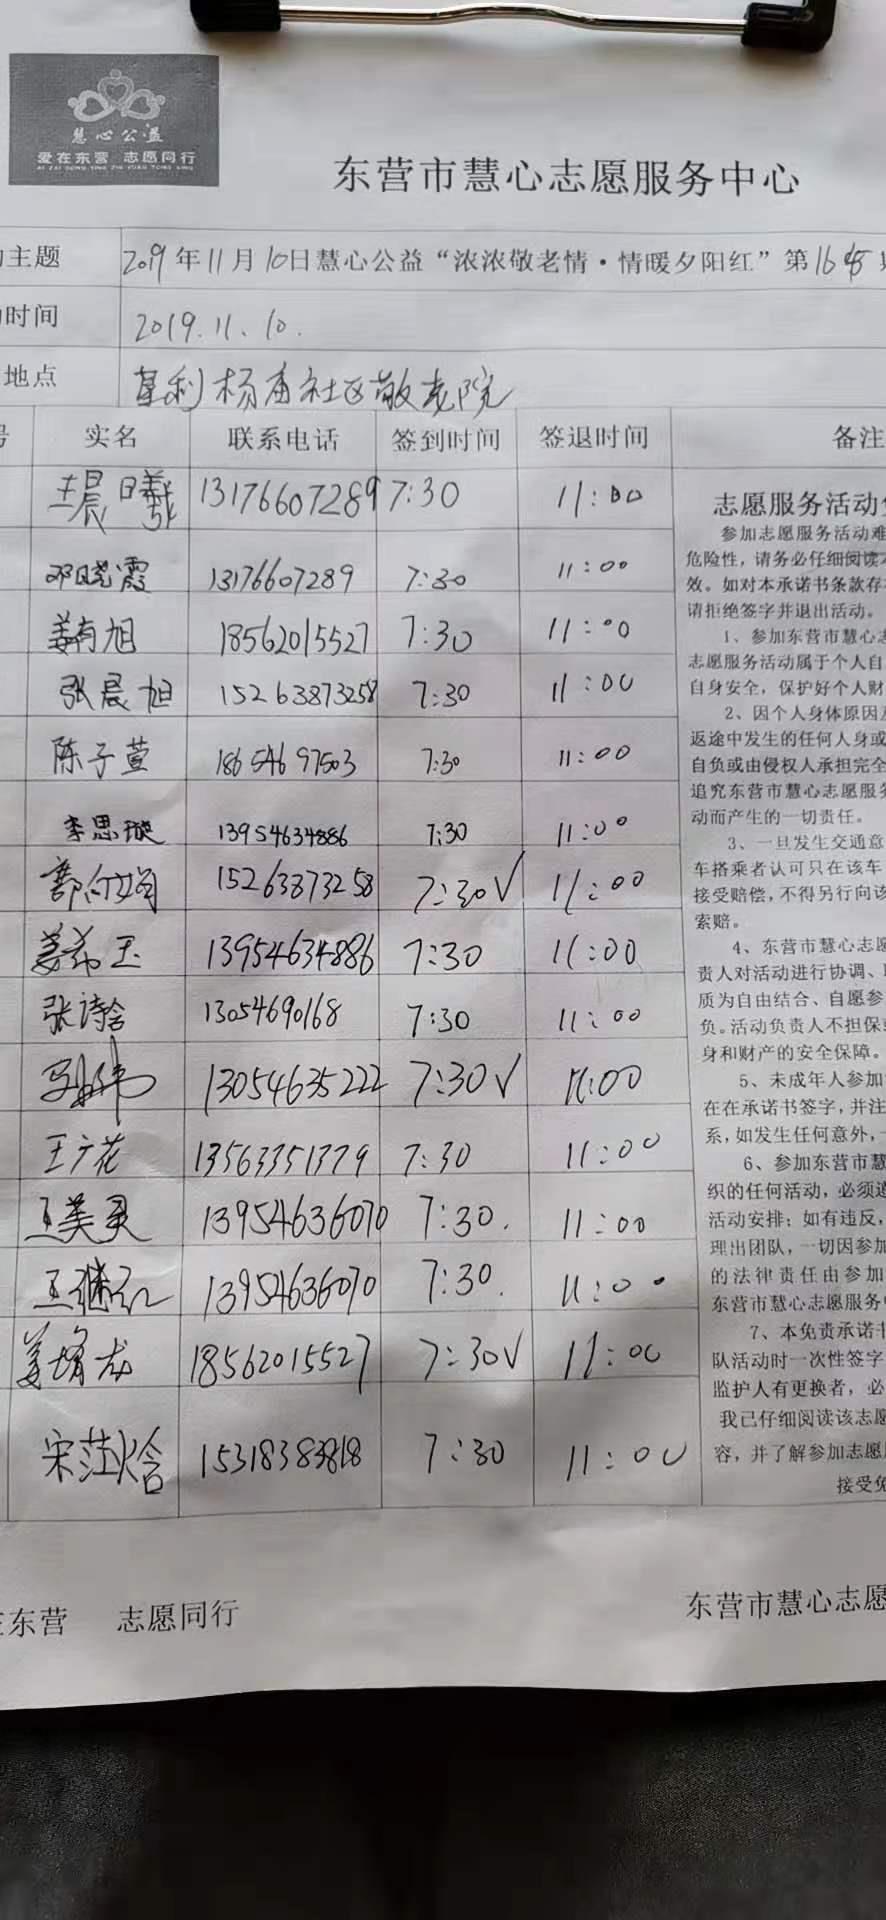 慧心公益
爱在东营 志愿同行
AI ZAI DONG YING ZHI YUAN TONG XING
东营市慧心志愿服务中心
主题 2019年11月10日慧心公益“浓浓敬老情·情暖夕阳红”第1645
时间 2019.11.10.
地点 垦利杨庙社区敬老院
实名 联系电话 签到时间 签退时间 备注
王晨曦 13176607289 7:30 11:00
邓晓霞 13176607289 7:30 11:00
姜有旭 18562015527 7:30 11:00
张晨旭 15263873258 7:30 11:00
陈子萱 18654697503 7:30 11:00
李思璇 13954634886 7:30 11:00
15263873258 7:30√ 11:00
姜希玉 13954634886 7:30 11:00
张诗含 13054690168 7:30 11:00
13054635222 7:30√ 11:00
王广花 13563351379 7:30 11:00
王美灵 13954636070 7:30. 11:00
王继红 13954636070 7:30. 11:00
姜 龙 18562015527 7:30√ 11:00
宋 15318383818 7:30 11:00
志愿服务活动
参加志愿服务活动难
危险性，请务必仔细阅读
效。如对本承诺书条款存
请拒绝签字并退出活动。
1、参加东营市慧心志
志愿服务活动属于个人自
自身安全，保护好个人财
2、因个人身体原因及
返途中发生的任何人身或
自负或由侵权人承担完全
追究东营市慧心志愿服务
动而产生的一切责任。
3、一旦发生交通意
车搭乘者认可只在该车
接受赔偿，不得另行向该
索赔。
4、东营市慧心志愿
责人对活动进行协调、
质为自由结合、自愿参
负。活动负责人不担保
身和财产的安全保障。
5、未成年人参加
在在承诺书签字，并注
系，如发生任何意外，
6、参加东营市慧
织的任何活动，必须遵
活动安排；如有违反，
理出团队，一切因参加
的法律责任由参加
东营市慧心志愿服务
7、本免责承诺书
队活动时一次性签字
监护人有更换者，必
我已仔细阅读该志愿
容，并了解参加志愿
接受免
东营 志愿同行
东营市慧心志愿